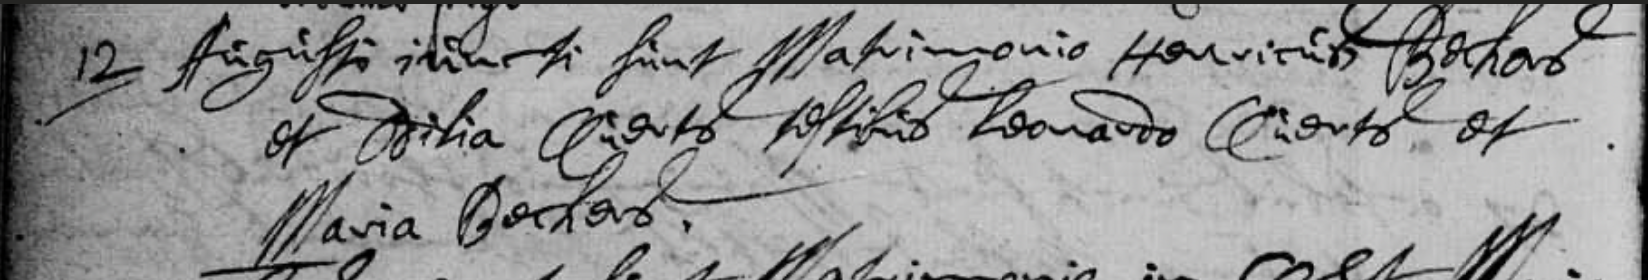 12 Augusti iuncti sunt Matrimonio Henricus Bechers
et Odilia Cüerts testibus Leonardo Cüerts et
Maria Bechers.
Matrimonio